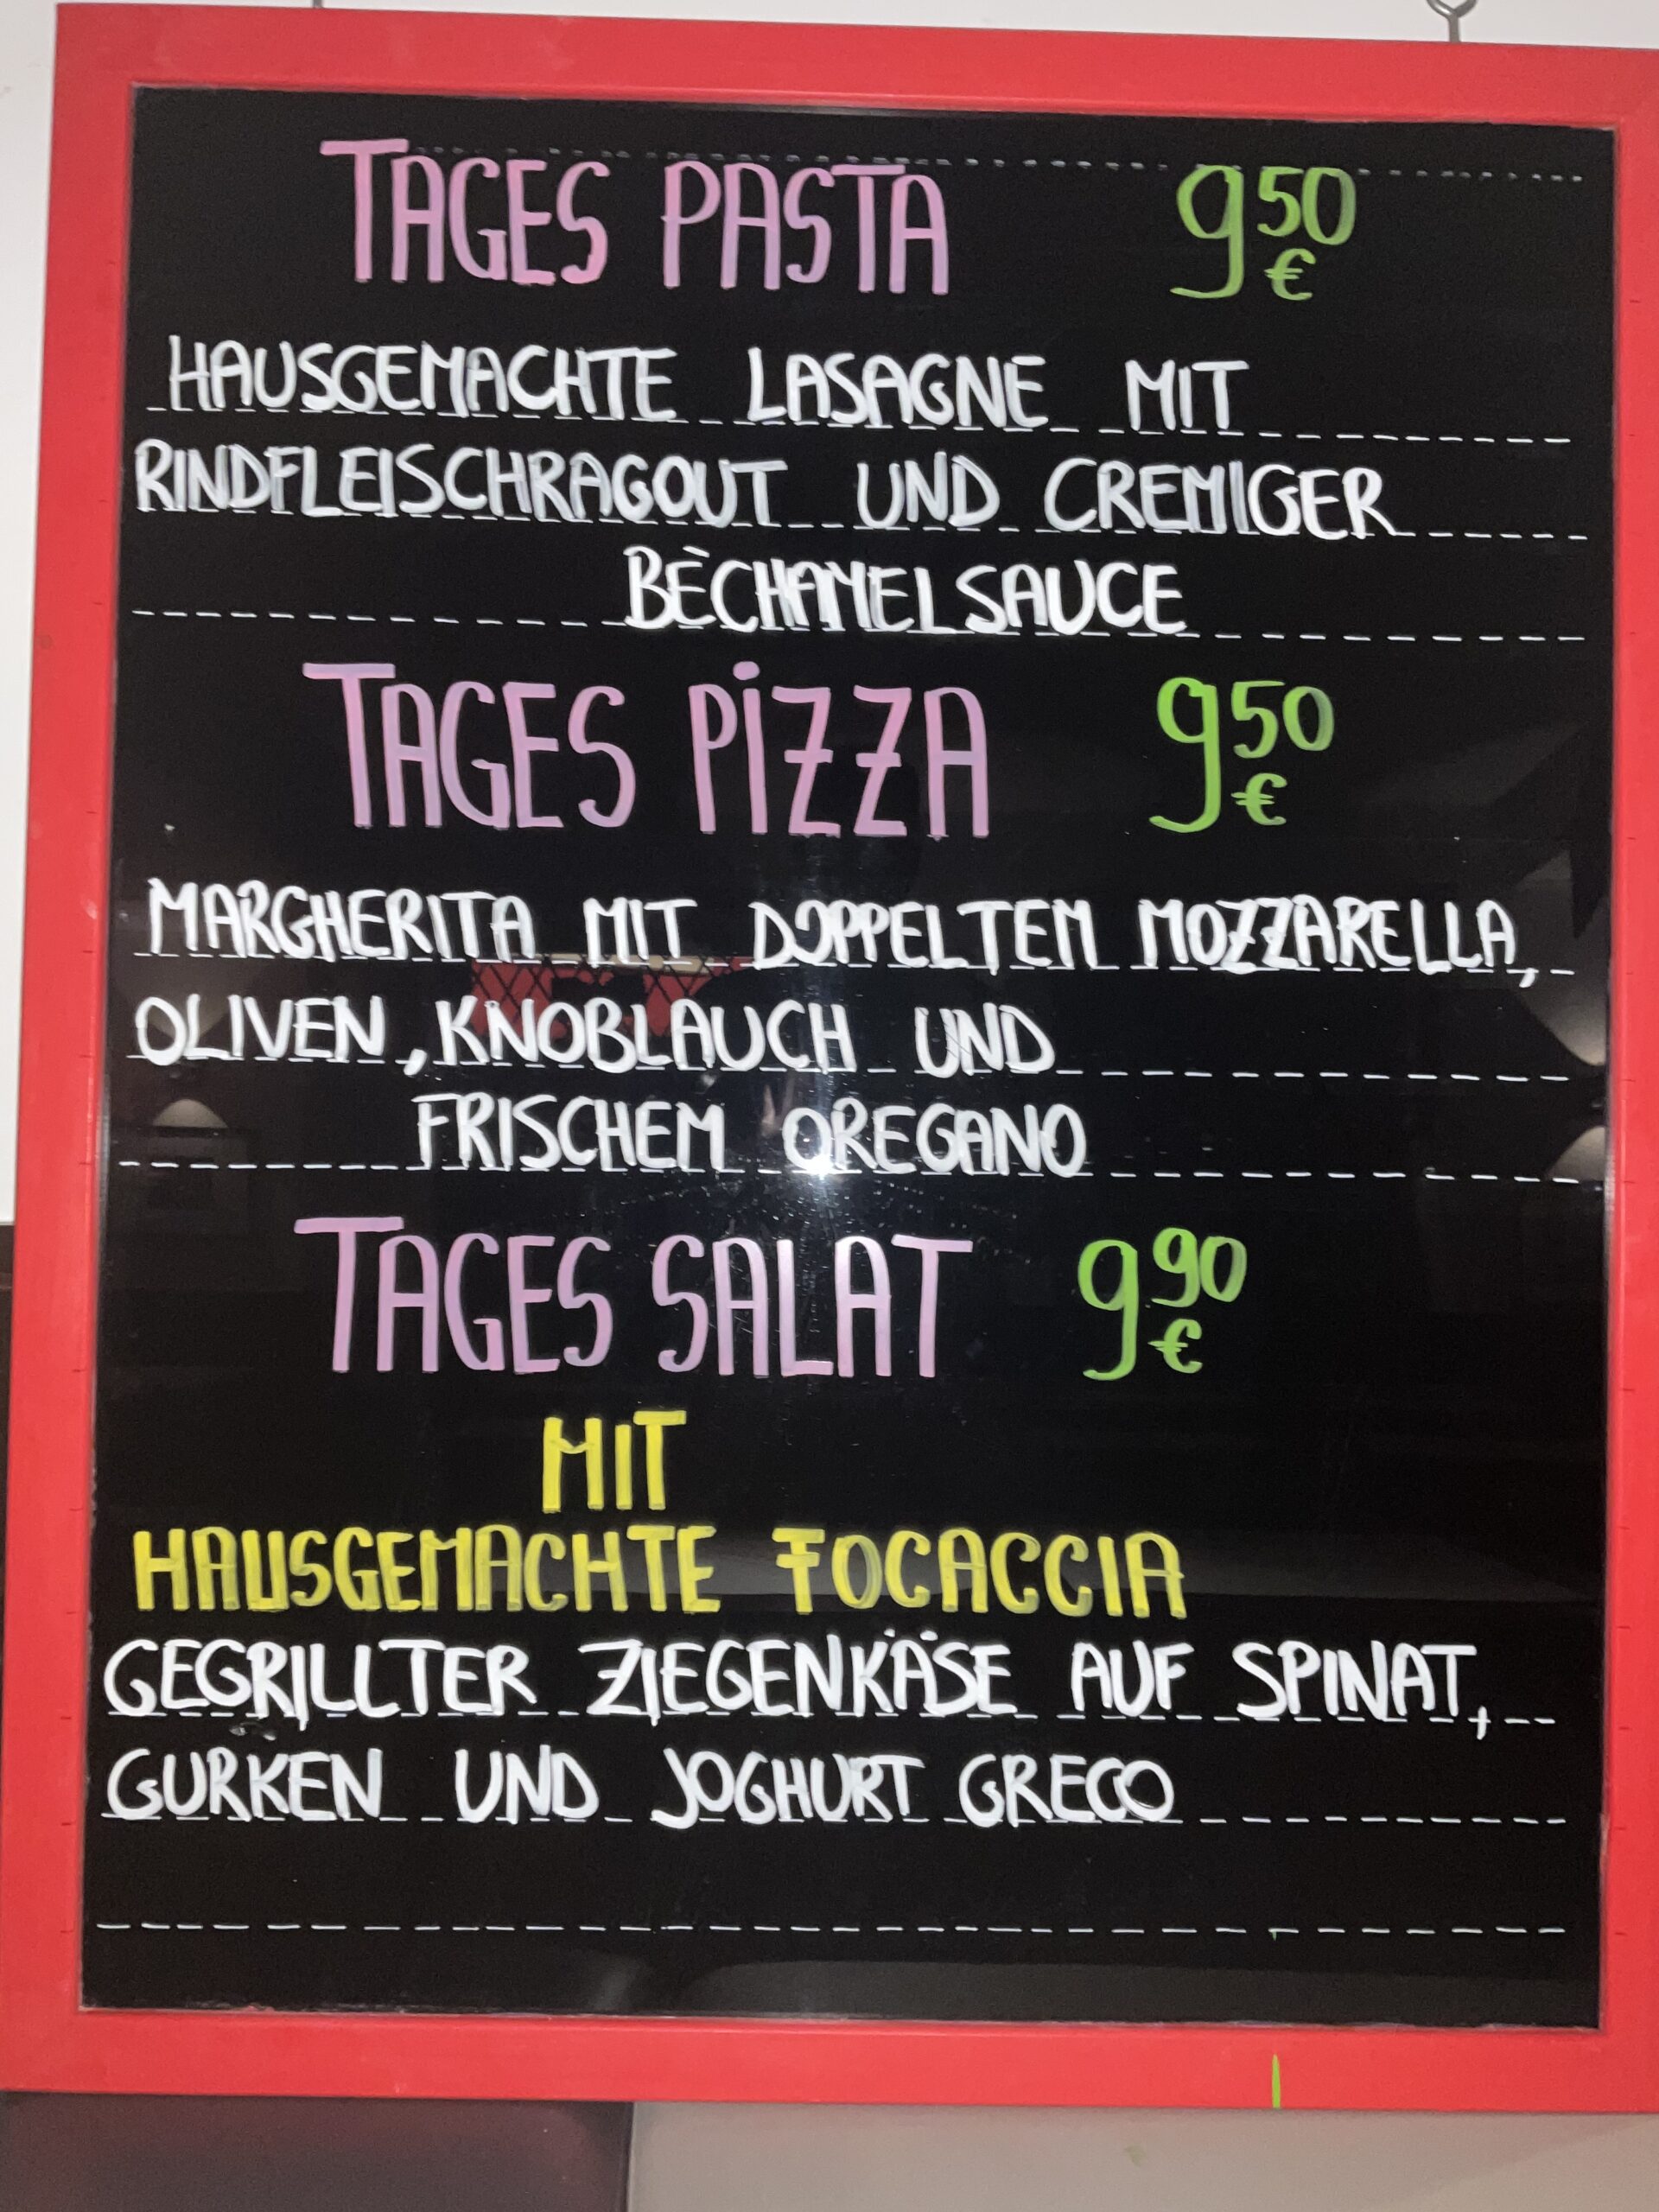 TAGES PASTA 9 50 €
HAUSGEMACHTE LASAGNE MIT
RINDFLEISCHRAGOUT UND CREMIGER
BÈCHAMELSAUCE
TAGES PIZZA 9 50 €
MARGHERITA MIT DOPPELTEM MOZZARELLA,
OLIVEN, KNOBLAUCH UND
FRISCHEM OREGANO
TAGES SALAT 9 90 €
MIT
HAUSGEMACHTE FOCACCIA
GEGRILLTER ZIEGENKÄSE AUF SPINAT,
GURKEN UND JOGHURT GRECO